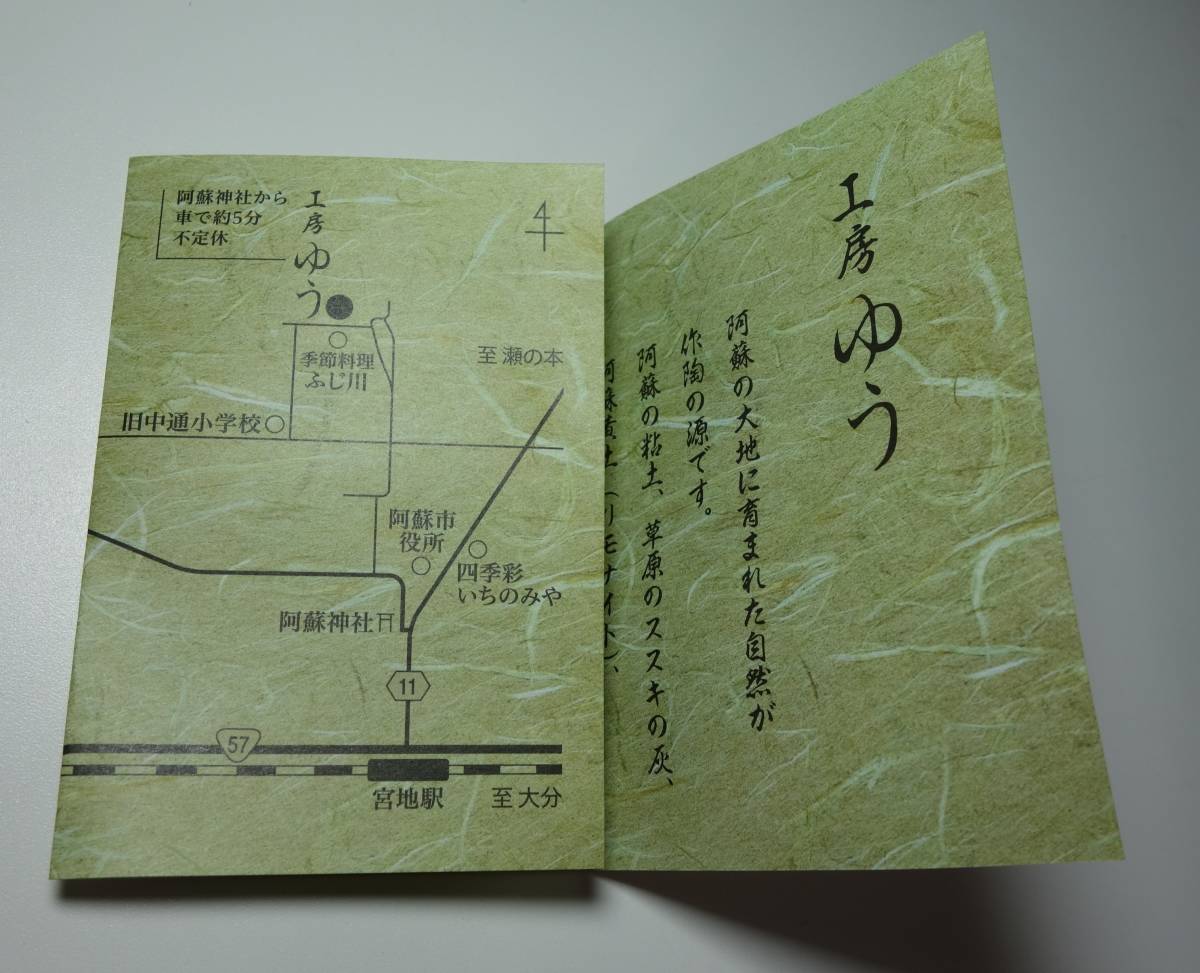 阿蘇神社から
車で約5分
不定休
工房
ゆう
季節料理
ふじ川
至 瀬の本
旧中通小学校
阿蘇市
役所
四季彩
いちのみや
阿蘇神社
11
57
宮地駅
至 大分
工房 ゆう
阿蘇の大地に育まれた自然が
作陶の源です。
阿蘇の粘土、草原のススキの灰、
阿蘇黄土(リモナイト)、